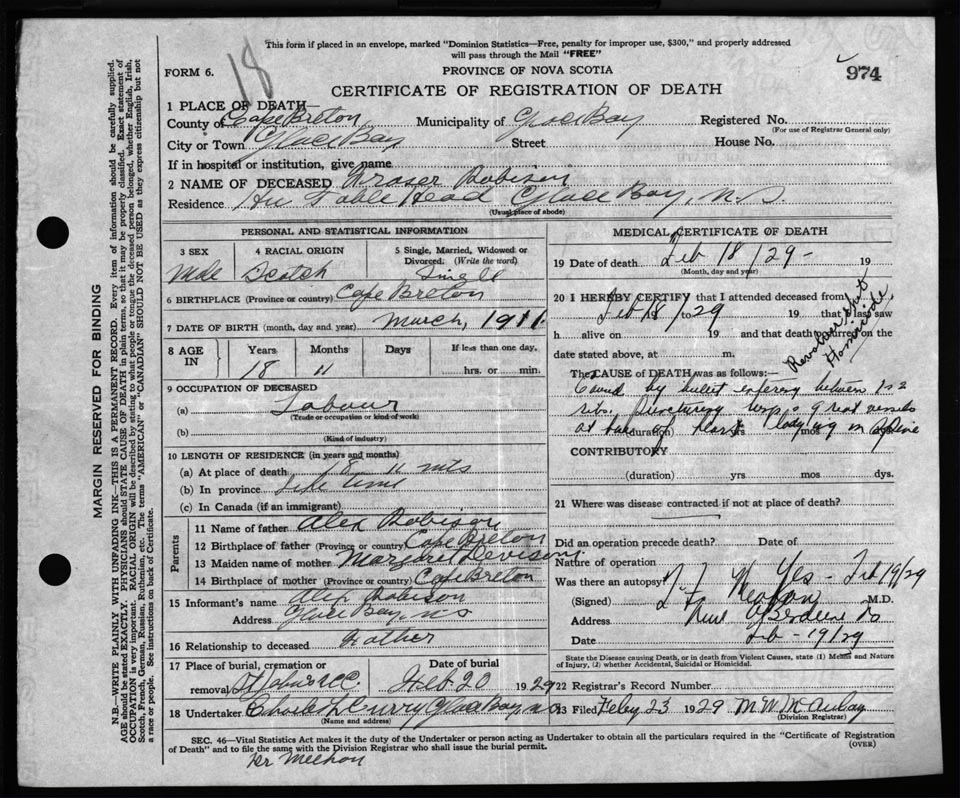 18
This form if placed in an envelope, marked "Dominion Statistics—Free, penalty for improper use, $300," and properly addressed
will pass through the Mail "FREE"
974
FORM 6.
PROVINCE OF NOVA SCOTIA
CERTIFICATE OF REGISTRATION OF DEATH
1 PLACE OF DEATH—
County of Cape Breton Municipality of Glace Bay Registered No.
(For use of Registrar General only)
City or Town Glace Bay Street House No.
If in hospital or institution, give name
2 NAME OF DECEASED Fraser Robison
Residence Table Head Glace Bay, N.S.
(Usual place of abode)
PERSONAL AND STATISTICAL INFORMATION
3 SEX
Male
4 RACIAL ORIGIN
Scotch
5 Single, Married, Widowed or
Divorced. (Write the word)
Single
6 BIRTHPLACE (Province or country) Cape Breton
7 DATE OF BIRTH (month, day and year) March, 1911
8 AGE
IN
Years
18
Months
11
Days
If less than one day,
hrs. or min.
9 OCCUPATION OF DECEASED
(a) Labour
(Trade or occupation or kind of work)
(b)
(Kind of industry)
10 LENGTH OF RESIDENCE (in years and months)
(a) At place of death 18 - 11 mts
(b) In province Life time
(c) In Canada (if an immigrant)
Parents
11 Name of father Alex Robison
12 Birthplace of father (Province or country) Cape Breton
13 Maiden name of mother Margaret Davison
14 Birthplace of mother (Province or country) Cape Breton
15 Informant's name Alex Robison
Address Glace Bay, N.S
16 Relationship to deceased Father
17 Place of burial, cremation or
removal
Date of burial
Feb 20 1929
18 Undertaker Charles Curry Glace Bay, N.S
(Name and address)
MEDICAL CERTIFICATE OF DEATH
19 Date of death Feb 18/29 - 19
(Month, day and year)
20 I HEREBY CERTIFY that I attended deceased from
Feb 18 to 29 19 that I last saw
h alive on 19 and that death occurred on the
date stated above, at m.
Revolver shot
Homicide
The CAUSE of DEATH was as follows:—
Caused by bullet entering between 1 & 2
ribs. Puncturing great vessels
at base of heart & lodging in Spine
(duration) yrs mos dys.
CONTRIBUTORY
(duration) yrs mos dys.
21 Where was disease contracted if not at place of death?
Did an operation precede death? Date of
Nature of operation
Was there an autopsy? Yes - Feb 19/29
(Signed) M.D.
Address New Aberdeen
Date Feb - 19/29
State the Disease causing Death, or in death from Violent Causes, state (1) Means and Nature
of Injury, (2) whether Accidental, Suicidal or Homicidal.
22 Registrar's Record Number
23 Filed Feby 23 1929 M. W. McAulay
(Division Registrar)
SEC. 46—Vital Statistics Act makes it the duty of the Undertaker or person acting as Undertaker to obtain all the particulars required in the "Certificate of Registration
of Death" and to file the same with the Division Registrar who shall issue the burial permit.
(OVER)
MARGIN RESERVED FOR BINDING
N.B.—WRITE PLAINLY WITH UNFADING INK—THIS IS A PERMANENT RECORD. Every item of information should be carefully supplied.
AGE should be stated EXACTLY. PHYSICIANS should STATE CAUSE OF DEATH in plain terms, so that it may be properly classified. Exact statement of
OCCUPATION is very important. RACIAL ORIGIN will be described by stating to what people or tongue the deceased person belonged, whether English, Irish,
Scotch, French, German, Russian, Ruthenian, etc. The terms "AMERICAN" or "CANADIAN" SHOULD NOT BE USED as they express citizenship but not
a race or people. See instructions on back of Certificate.